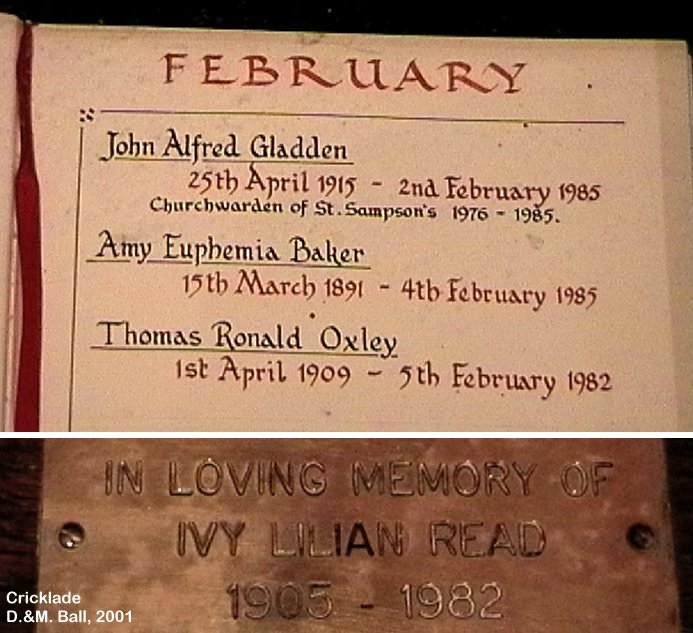 FEBRUARY
John Alfred Gladden
25th April 1915 - 2nd February 1985
Churchwarden of St. Sampson's 1976 - 1985.
Amy Euphemia Baker
15th March 1891 - 4th February 1985
Thomas Ronald Oxley
1st April 1909 - 5th February 1982
IN LOVING MEMORY OF
IVY LILIAN READ
1905 - 1982
Cricklade
D.&M. Ball, 2001